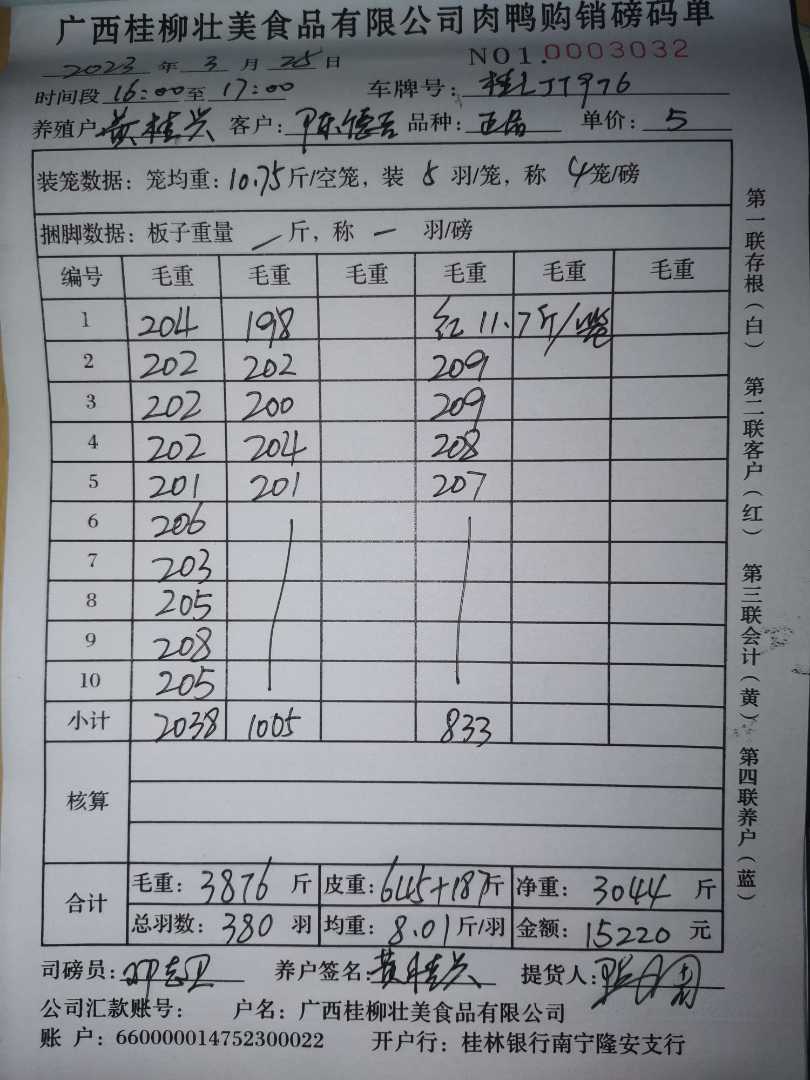 广西桂柳壮美食品有限公司肉鸭购销磅码单
2023 年 3 月 25 日 NO1.0003032
时间段 16:00 至 17:00 车牌号: 976
养殖户 黄桂兴 客户: 陈德 品种: 正品 单价: 5
装笼数据: 笼均重: 10.75 斤/空笼, 装 5 羽/笼, 称 4 笼/磅
捆脚数据: 板子重量 — 斤, 称 — 羽/磅
编号 毛重 毛重 毛重 毛重 毛重 毛重
1 204 198 红 11.7斤/笼
2 202 202 209
3 202 200 209
4 202 204 208
5 201 201 207
6 206
7 203
8 205
9 208
10 205
小计 2038 1005 833
核算
合计 毛重: 3876 斤 皮重: 645+187 斤 净重: 3044 斤
总羽数: 380 羽 均重: 8.01 斤/羽 金额: 15220 元
司磅员: 养户签名: 黄桂兴 提货人:
公司汇款账号: 户名: 广西桂柳壮美食品有限公司
账 户: 660000014752300022 开户行: 桂林银行南宁隆安支行
第一联存根(白) 第二联客户(红) 第三联会计(黄) 第四联养户(蓝)